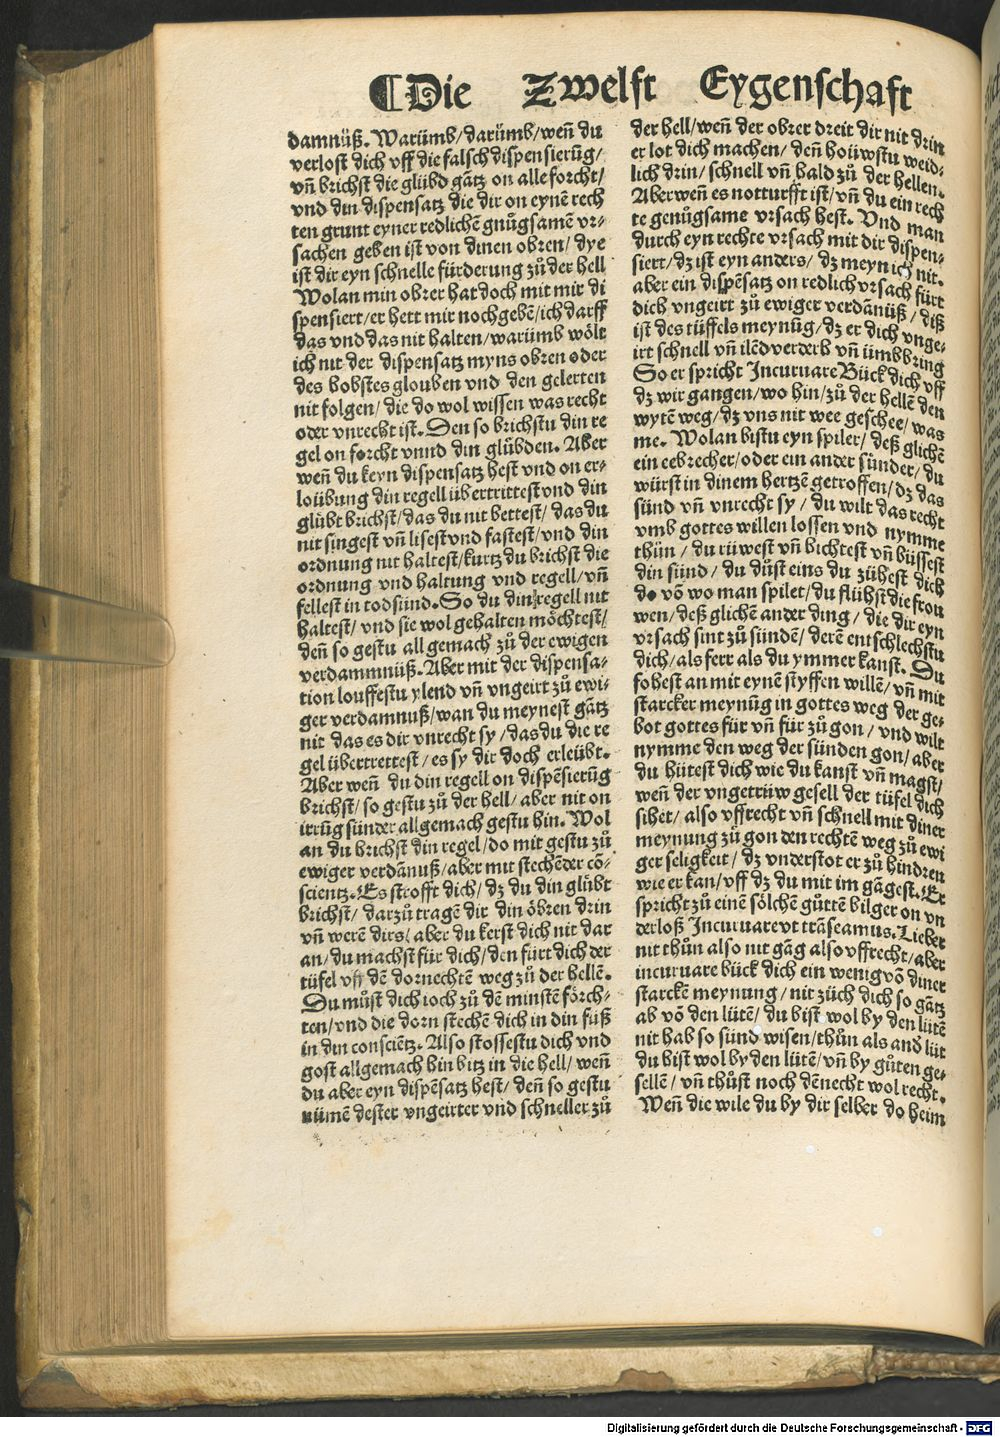 ¶Die Zwelfft Eygenschafft
damnüß. Warümb/darümb/weñ du
verlost dich vff die falsch dispensierũg/
vñ brichst die glübd gãtz on alle forcht/
vnd din dispensatz die dir on eynẽ rech
ten grunt eyner redlichẽ gnůgsamẽ vr⸗
sachen geben ist von dinen obren/dye
ist dir eyn schnelle fürderung zů der hell
Wolan min obrer hat doch mit mir di
spensiert/er hett mir nochgebẽ/ich darff
das vnd das nit halten/warümb wölt
ich nit der dispensatz myns obren oder
des bobstes glouben vnd den gelerten
nit folgen/die do wol wissen was recht
oder vnrecht ist. Den so brichstu din re
gel on forcht vnnd din glübden. Aber
weñ du keyn dispensatz hest vnd on er⸗
loübung din regell übertrittest vnd din
glübt brichst/das du nit bettest/das du
nit singest vñ lisest vnd fastest/vnd din
ordnung nit haltest/kurtz du brichst die
ordnung vnd haltung vnd regell/vñ
fellest in todsünd. So du din regell nit
haltest/vnd sie wol gehalten möchtest/
deñ so gestu all gemach zů der ewigen
verdammnüß. Aber mit der dispensa⸗
tion louffestu ylend vñ vngeirt zů ewi⸗
ger verdamnuß/wan du meynest gãtz
nit das es dir vnrecht sy/das du die re
gel übertrettest/es sy dir doch erleübt.
Aber weñ du din regell on dispẽsierũg
brichst/so gestu zů der hell/aber nit on
irrũg sünder allgemach gestu hin. Wol
an du brichst din regel/do mit gestu zů
ewiger verdãnuß/aber mit stechẽder cõ⸗
scientz. Es strofft dich/dz du din glübt
brichst/darzů tragẽ dir din öbren drin
vñ werẽ dirs/aber du kerst dich nit dar
an/du machst für dich/den fürt dich der
tüfel vff dẽ dornechtẽ weg zů der hellẽ.
Du můst dich ioch zů dẽ minstẽ förch⸗
ten/vnd die dorn stechẽ dich in din füß
in din consciẽtz. Also stossestu dich vnd
gost allgemach hin bitz in die hell/weñ
du aber eyn dispẽsatz hest/deñ so gestu
nümẽ dester vngeirter vnd schneller zů
der hell/weñ der obrer dreit dir nit drin
er lot dich machen/deñ hoüwstu weid⸗
lich drin/schnell vñ bald zů der hellen.
Aber weñ es notturfft ist/vñ du ein rech
te genůgsame vrsach hest. Vnd man
durch eyn rechte vrsach mit dir dispen⸗
siert/dz ist eyn anders/dz meyn ich nit.
aber ein dispẽsatz on redlich vrsach fürt
dich vngeirt zů ewiger verdãnüß/diß
ist des tüffels meynũg/dz er dich vnge⸗
irt schnell vñ ilẽd verderb vñ ümbbring
So er spricht Incuruare Bück dich vff
dz wir gangen/wo hin/zů der hellẽ den
wytẽ weg/dz vns nit wee geschee/was
me. Wolan bistu eyn spiler/deß glichẽ
ein eebrecher/oder ein ander sünder/du
würst in dinem hertzẽ getroffen/dz das
sünd vñ vnrecht sy/du wilt das recht
vmb gottes willen lossen vnd nymme
thůn/du rüwest vñ bichtest vñ büssest
din sünd/du důst eins du zühest dich
do võ wo man spilet/du flühst die frou
wen/deß glichẽ ander ding/die dir eyn
vrsach sint zů sündẽ/derẽ entschlechstu
dich/als ferr als du ymmer kanst. Du
fohest an mit eynẽ styffen willẽ/vñ mit
starcker meynũg in gottes weg der ge⸗
bot gottes für vñ für zů gon/vnd wilt
nymme den weg der sünden gon/aber
du hütest dich wie du kanst vñ magst/
weñ der vngetrüw gesell der tüfel dich
sihet/also vffrecht vñ schnell mit diner
meynung zů gon den rechtẽ weg zů ewi
ger seligkeit/dz vnderstot er zů hindren
wie er kan/vff dz du mit im gãgest. Er
spricht zů einẽ sölchẽ gůttẽ bilger on vn
derloß Incuruare vt trãseamus. Lieber
nit thůn also nit gãg also vffrecht/aber
incuruare bück dich ein wenig võ diner
starckẽ meynung/nit züch dich so gãtz
ab võ den lütẽ/du bist wol by den lütẽ
nit hab so sünd wisen/thůn als and lüt
du bist wol by den lütẽ/vñ by gůten ge⸗
sellẽ/vñ thůst noch dẽnecht wol recht.
Weñ die wile du by dir selber do heim
Digitalisierung gefördert durch die Deutsche Forschungsgemeinschaft - DFG